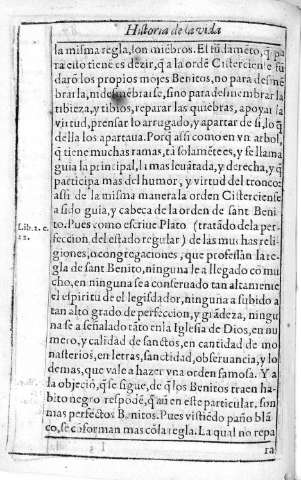 Historia de la vida
la misma regla, son miẽbros. El fũdamẽto, q̃ pa
ra esto tiene es dezir, q̃ a la ordẽ Cisterciense fũ
darõ los propios mõjes Benitos, no para desmẽ
brarla, ni desmẽbrarse, sino para desmembrar la
tibieza, y tibios, reparar las quiebras, apoyar la
virtud, prensar lo arrugado, y apartar de si, lo q̃
della los apartaua. Porq̃ assi como en vn arbol,
q̃ tiene muchas ramas, tã solamẽte es, y se llama
guia la principal, la mas leuãtada, y derecha, y q̃
participa mas del humor, y virtud del tronco:
assi de la misma manera la orden Cisterciense
a sido guia, y cabeca de la orden de sant Beni-
to. Pues como escriue Plato (tratãdo de la per-
Lib. 2. c.
22.
feccion del estado regular) de las muchas reli-
giones, o congregaciones, que professan la re-
gla de sant Benito, ninguna se a llegado cõ mu
cho, en ninguna se a conseruado tan altamente
el espiritu de el legislador, ninguna a subido a
tan alto grado de perfeccion, y grãdeza, ningu
na se a señalado tãto en la Iglesia de Dios, en nu
mero, y calidad de sanctos, en cantidad de mo
nasterios, en letras, sanctidad, obseruancia, y lo
demas, que vale a hazer vna orden famosa. Y a
la objeciõ, q̃ se sigue, de q̃ los Benitos traen ha-
bito negro respodẽ, q̃ aũ en este particular, son
mas perfectos Benitos. Pues vistiẽdo paño blã
co, se cõforman mas cõ la regla. La qual no repa
ra